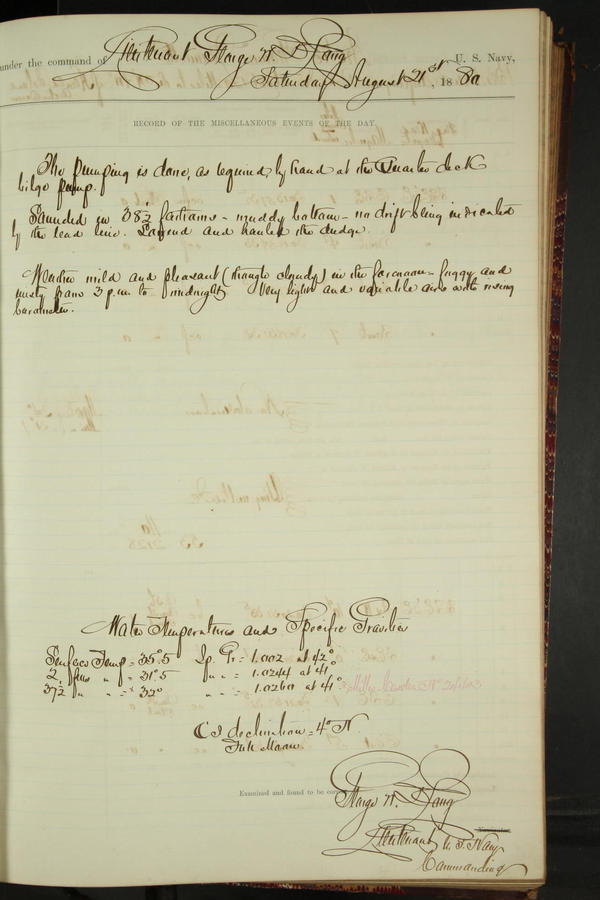 under the command of Lieutenant George W. De Long U. S. Navy,
Saturday August 21st, 1880
RECORD OF THE MISCELLANEOUS EVENTS OF THE DAY.
The pumping is done, as required by hand at the Quarter deck
bilge pump.
Sounded in 38½ fathoms - muddy bottom - no drift being indicated
by the lead line. Lowered and hauled the dredge.
Weather mild and pleasant (though cloudy) in the forenoon - foggy and
misty from 3 p.m. to midnight. Very light and variable airs with rising
barometer.
Water Temperatures and Specific Gravities
Surface Temp = 35°.5 Sp. Gr = 1.002 at 42°
2 fms " = 31°.5 " " = 1.0244 at 41°
37½ " " = 32° " " = 1.0260 at 41°
CS declination = 4° N.
Full Moon.
Examined and found to be
George W. De Long
Lieutenant U. S. Navy
Commanding